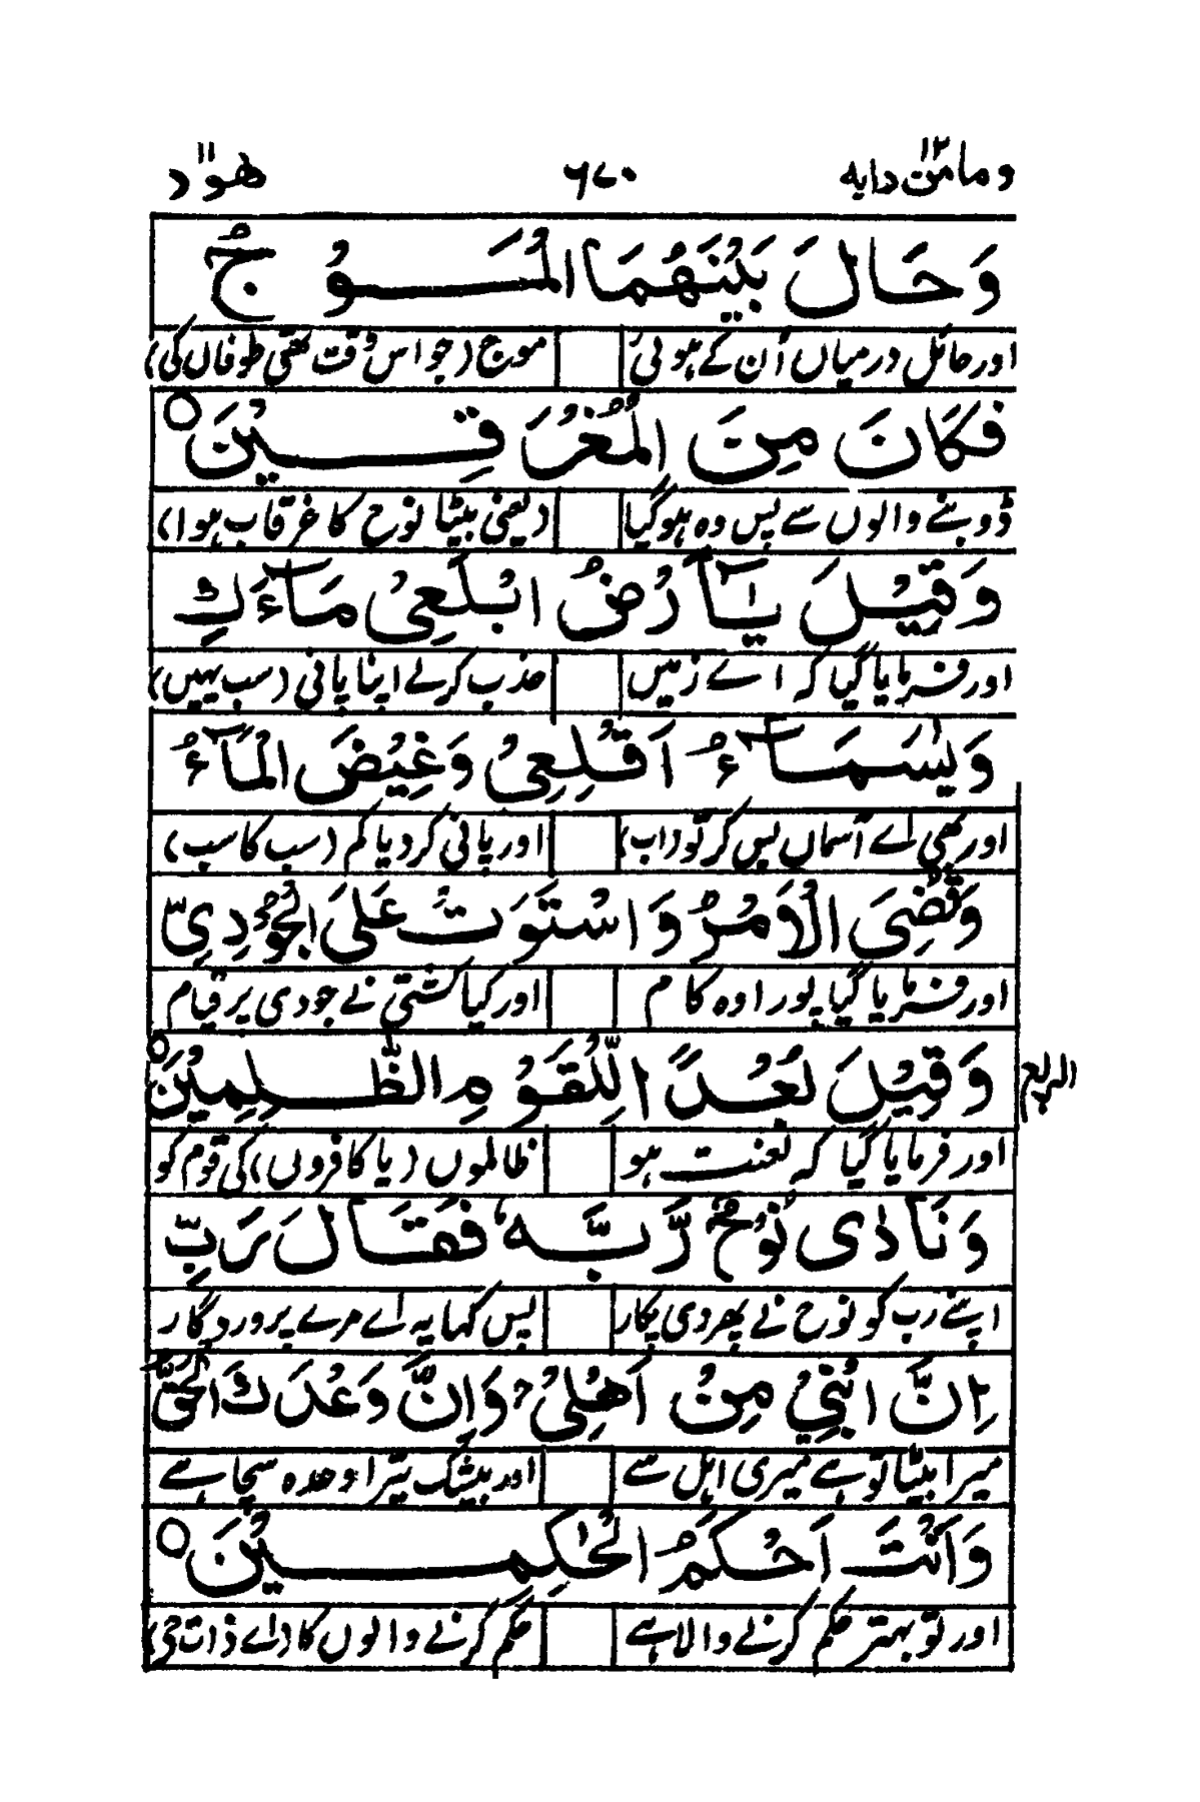 وما من دابه ١٢ ٦٧٠ هود ١١
وَحَالَ بَيْنَهُمَا الْمَوْجُ
اور حائل درمیاں اُن کے ہوئی موج (جو اس وقت تھی طوفاں کی)
فَكَانَ مِنَ الْمُغْرَقِيْنَ ○
ڈوبنے والوں سے پس وہ ہوگیا (یعنی بیٹا نوح کا غرقاب ہوا)
وَقِيْلَ يٰۤاَرْضُ ابْلَعِيْ مَآءَكِ
اور فرمایا گیا کہ اے زمیں جذب کرلے اپنا پانی (سب یہیں)
وَيٰسَمَآءُ اَقْلِعِيْ وَغِيْضَ الْمَآءُ
اور تھی اے آسماں بس کر تو (اب) اور پانی کردیا کم (سب کا سب)
وَقُضِيَ الْاَمْرُ وَاسْتَوَتْ عَلَى الْجُوْدِيِّ
اور فرمایا گیا پورا وہ کام اور کیا کشتی نے جودی پر قیام
وَقِيْلَ بُعْدًا لِّلْقَوْمِ الظّٰلِمِيْنَ ○
الربع
اور فرمایا گیا کہ لعنت ہو ظالموں (یا کافروں) کی قوم کو
وَنَادٰى نُوْحٌ رَّبَّهٗ فَقَالَ رَبِّ
اپنے رب کو نوح نے پھر دی پکار پس کہا یہ اے مرے پروردگار
اِنَّ ابْنِيْ مِنْ اَهْلِيْ وَاِنَّ وَعْدَكَ الْحَقُّ
میرا بیٹا تو ہے میری اہل سے اور بیشک تیرا وعدہ سچا ہے
وَاَنْتَ اَحْكَمُ الْحٰكِمِيْنَ ○
اور تو بہتر حکم کرنے والا ہے حکم کرنے والوں کا (اے ذات حق)